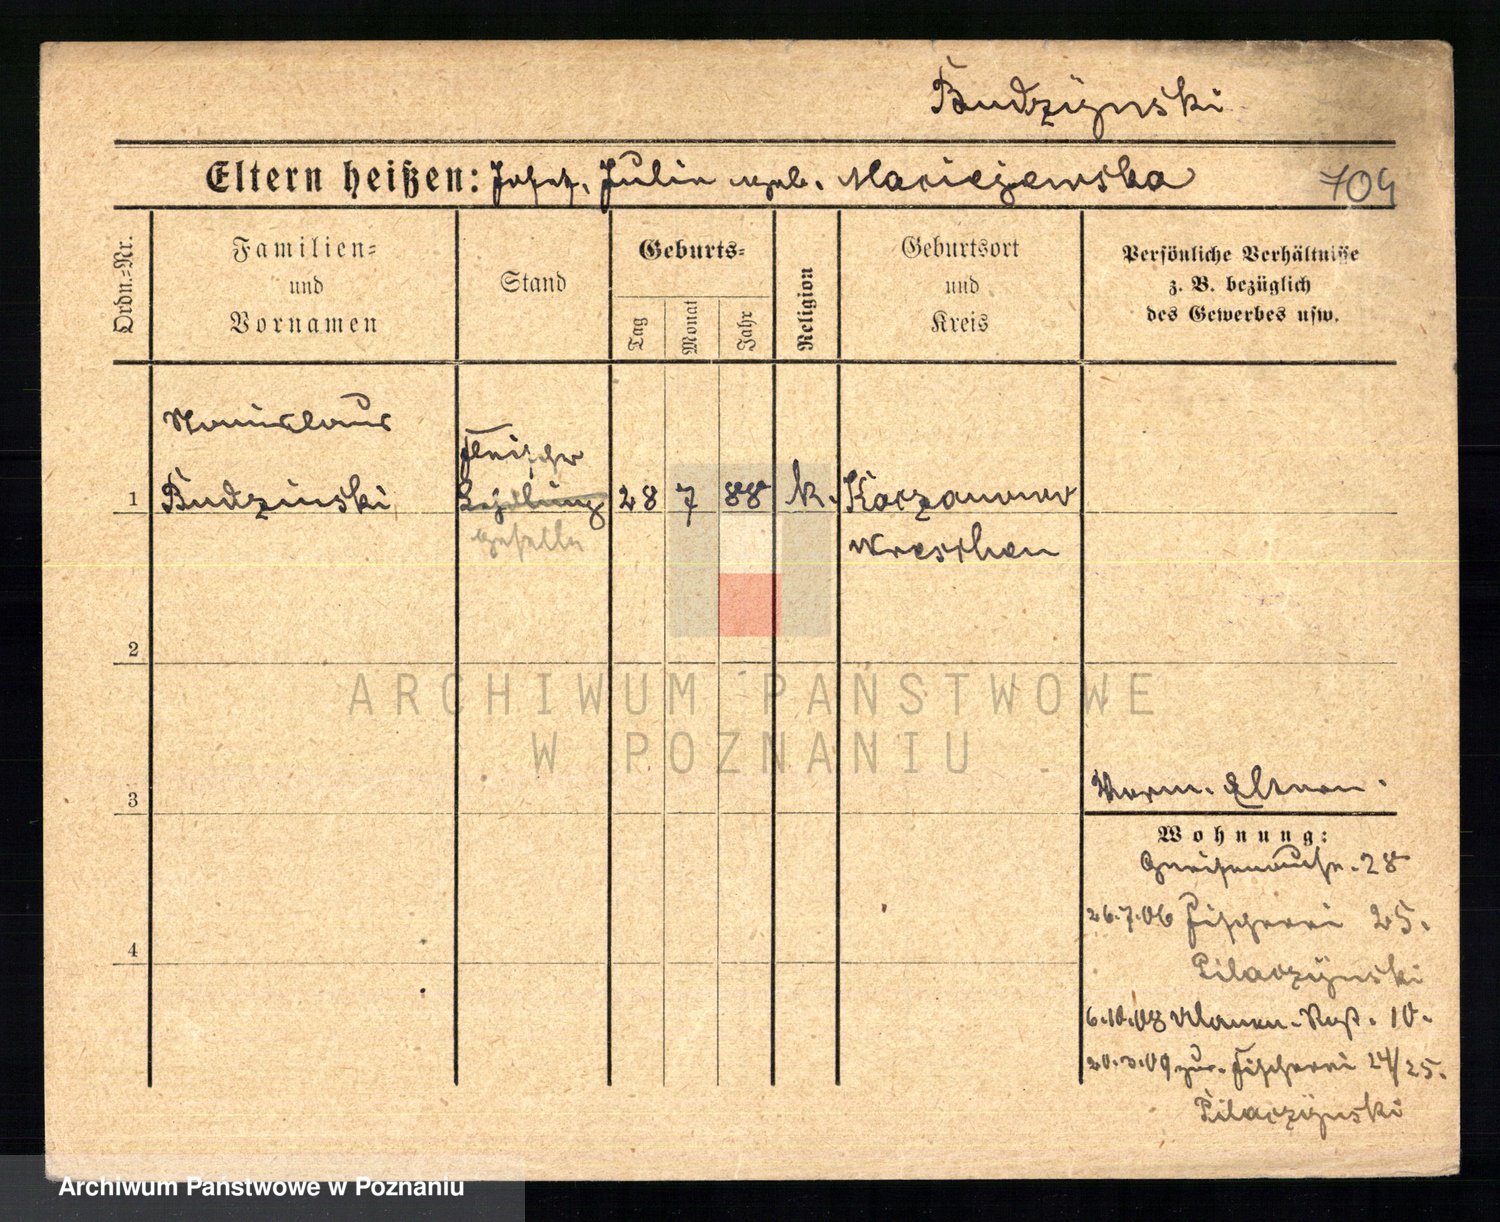 Budzÿnski
Eltern heißen: Josef, Julie geb. Maciejewska
704
Ordn.-Nr.
Familien- und Vornamen
Stand
Geburts-
Tag
Monat
Jahr
Religion
Geburtsort und Kreis
Persönliche Verhältnisse z. B. bezüglich des Gewerbes usw.
Stanislaus
Fleischer
1 Budzinski Lehrling 28 7 88 k. Kaczanowo
geselle
Wreschen
2
ARCHIWUM PAŃSTWOWE
W POZNANIU
3
Eltern.
Wohnung:
Gneisenaustr. 28
4
26.7.06 Fischerei 25.
Pilaczÿnski
6.10.08 Ulanen-Rgt. 10.
20.3.09 zur. Fischerei 24/25.
Pilaczÿnski
Archiwum Państwowe w Poznaniu